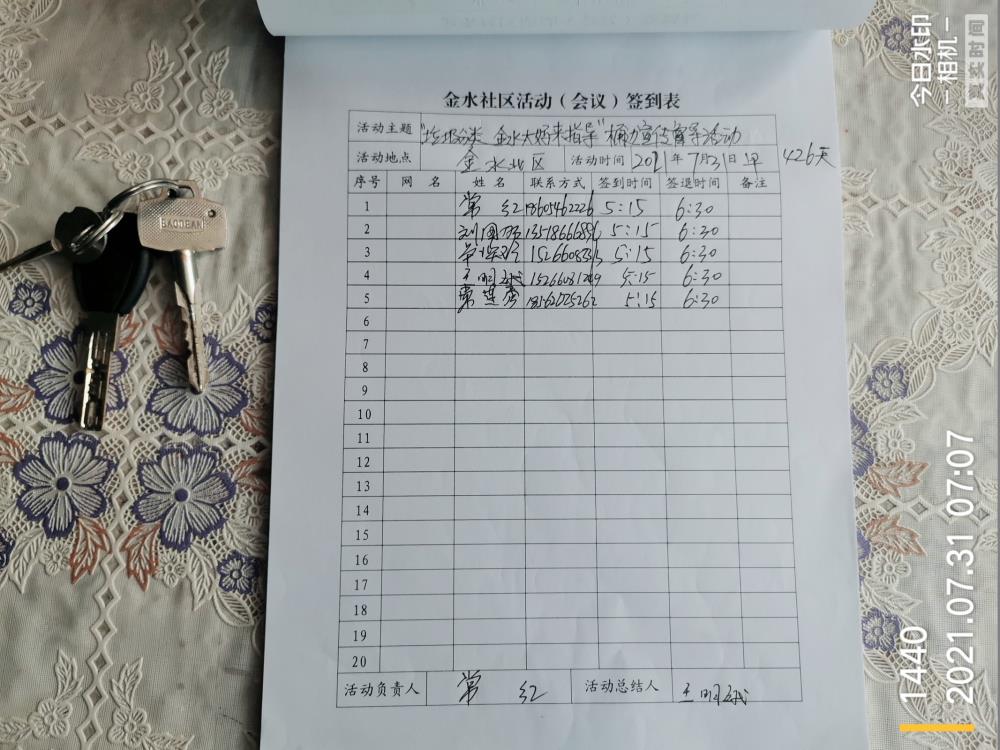 金水社区活动(会议)签到表
活动主题 "垃圾分类 金水大好来指导"桶边宣传督导活动
活动地点 金水北区 活动时间 2021年7月31日早 426天
序号 网 名 姓 名 联系方式 签到时间 签退时间 备注
1 常 红 5:15 6:30
2 5:15 6:30
3 5:15 6:30
4 5:15 6:30
5 5:15 6:30
6
7
8
9
10
11
12
13
14
15
16
17
18
19
20
活动负责人 常 红 活动总结人
BAOTEAN
今日水印
-相机-
真实时间
1440
2021.07.31 07:07